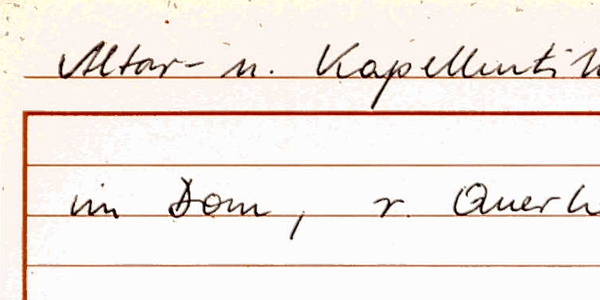 Altar- u. Kapellentit
im Dom, r. Querh